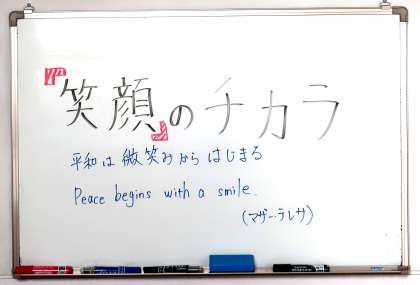 『笑顔』のチカラ
平和は微笑みからはじまる
Peace begins with a smile.
(マザーテレサ)